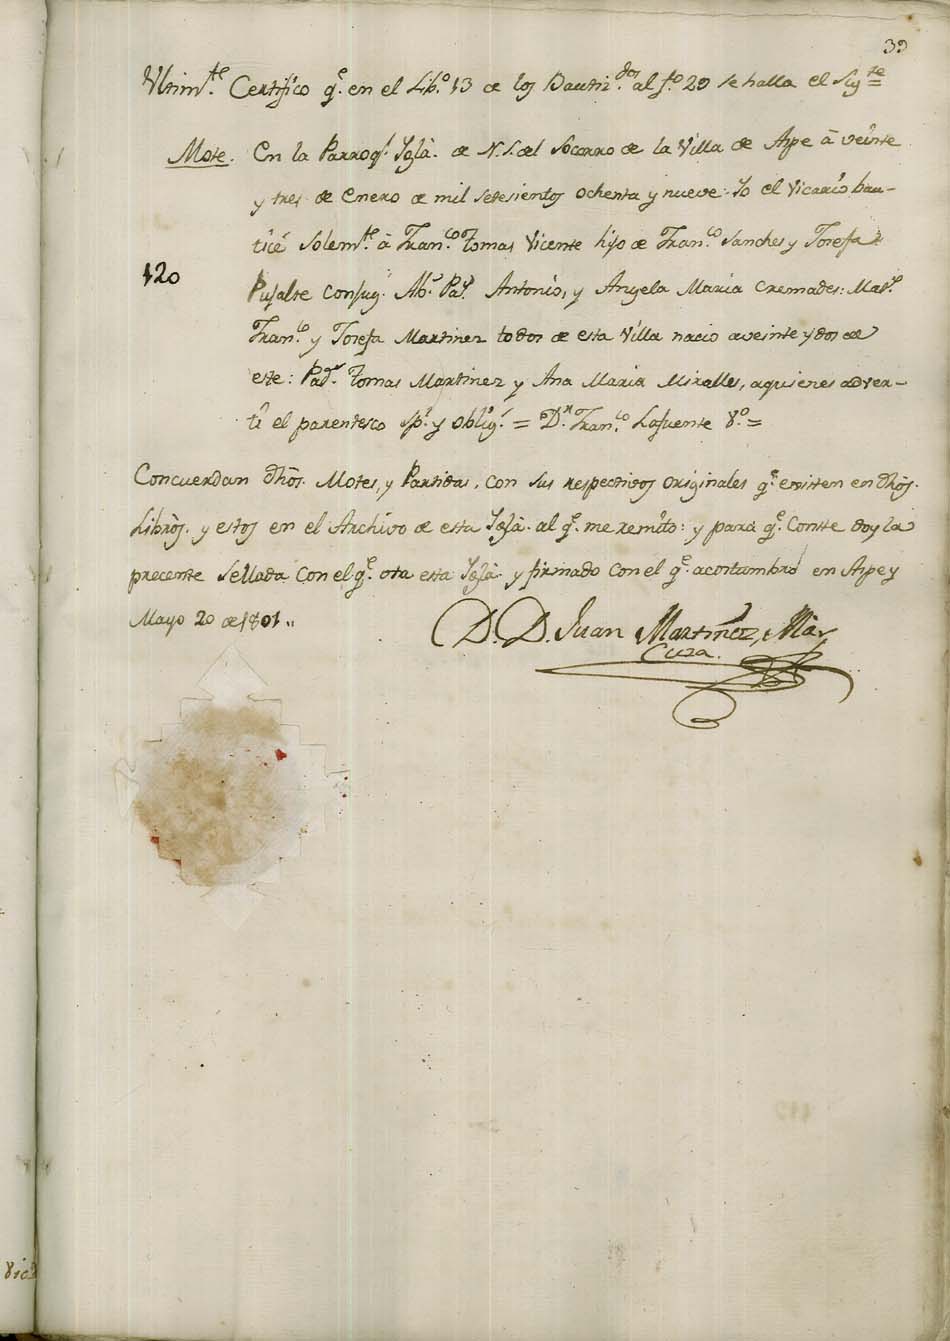 39
Ultim.te Certifico q.e en el Lib.o 13 de los Bautiz.dos al f.o 29 se halla el Sig.te =
Mote. En la Parroq.l Iglâ. de N. S. del Socorro de la Villa de Aspe â veinte
y tres de Enero de mil setesientos ochenta y nueve. Yo el Vicario bau-
ticé solem.te â Fran.co Tomas Vicente hijo de Fran.co Sanches y Josefa
120
Pujalte Consug. Ab.s Pat.s Antonio, y Angela Maria Cremades: Mat.s
Fran.co y Josefa Martinez todos de esta Villa nacio a veinte y dos de
este: Pad.s Tomas Martinez y Ana Maria Miralles, a quienes adver-
ti el parentesco Sp.l y oblig.n = D.r Fran.co Lafuente V.o =
Concuerdan dhôs. Motes, y Partidas, con sus respectivos originales q.e existen en dhôs.
Libros. y estos en el Archivo de esta Iglâ. al q.e me remito: y para q.e Conste doy la
precente Sellada Con el q.e usa esta Iglâ y firmado con el q.e acostumbro en Aspe y
Mayo 20 de 1801..
D. D. Juan Martinez, Mâr
Cura.
Vic.o